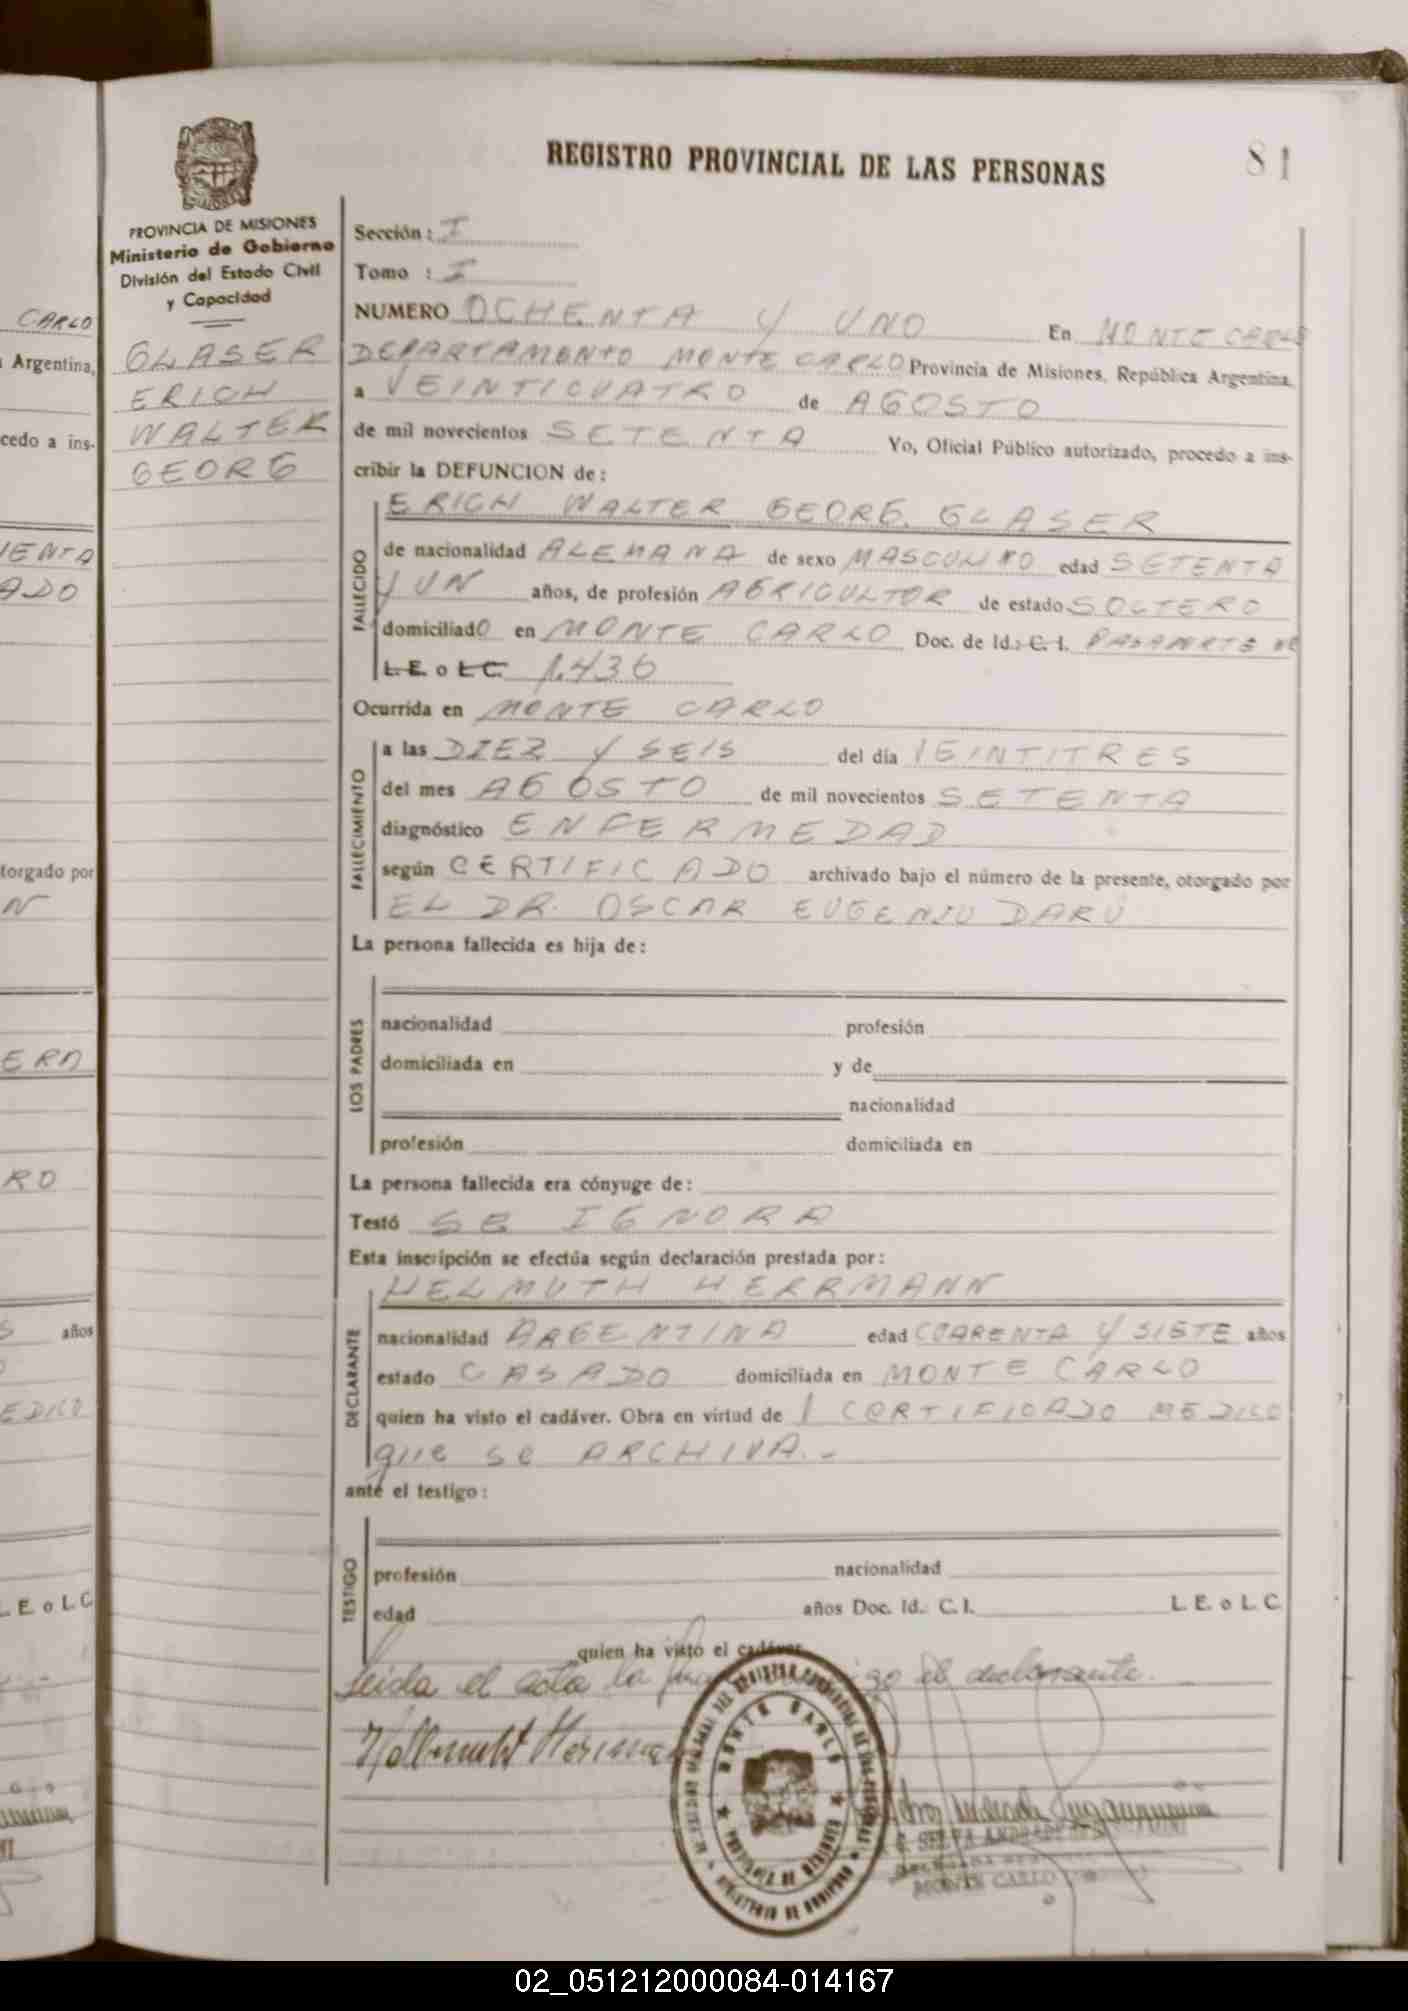 REGISTRO PROVINCIAL DE LAS PERSONAS
81
PROVINCIA DE MISIONES
Ministerio de Gobierno
División del Estado Civil
y Capacidad
GLASER
ERICH
WALTER
GEORG
Sección: I
Tomo : I
NUMERO OCHENTA Y UNO En MONTE CARLO
DEPARTAMENTO MONTE CARLO Provincia de Misiones, República Argentina,
a VEINTICUATRO de AGOSTO
de mil novecientos SETENTA Yo, Oficial Público autorizado, procedo a ins-
cribir la DEFUNCION de:
FALLECIDO
ERICH WALTER GEORG GLASER
de nacionalidad ALEMANA de sexo MASCULINO edad SETENTA
Y UN años, de profesión AGRICULTOR de estado SOLTERO
domiciliadO en MONTE CARLO Doc. de Id.: C. I. PASAPORTE Nº
L. E. o L C. 1.436
Ocurrida en MONTE CARLO
FALLECIMIENTO
a las DIEZ Y SEIS del día VEINTITRES
del mes AGOSTO de mil novecientos SETENTA
diagnóstico ENFERMEDAD
según CERTIFICADO archivado bajo el número de la presente, otorgado por
EL DR. OSCAR EUGENIO DARÚ
La persona fallecida es hija de:
LOS PADRES
nacionalidad profesión
domiciliada en y de
nacionalidad
profesión domiciliada en
La persona fallecida era cónyuge de:
Testó SE IGNORA
Esta inscripción se efectúa según declaración prestada por:
DECLARANTE
HELMUTH HERRMANN
nacionalidad ARGENTINA edad CUARENTA Y SIETE años
estado CASADO domiciliada en MONTE CARLO
quien ha visto el cadáver. Obra en virtud de 1 CERTIFICADO MEDICO
que se ARCHIVA.-
ante el testigo:
TESTIGO
profesión nacionalidad
edad años Doc. Id.: C. I. L. E. o L. C.
quien ha visto el cadáver
Leida el acta la el declarante.
MONTE CARLO
PROVINCIA DE MISIONES
MINISTERIO DE GOBIERNO
MONTE CARLO
CARLO
Argentina,
cedo a ins-
torgado por
años
L. E. o L. C.
02_051212000084-014167